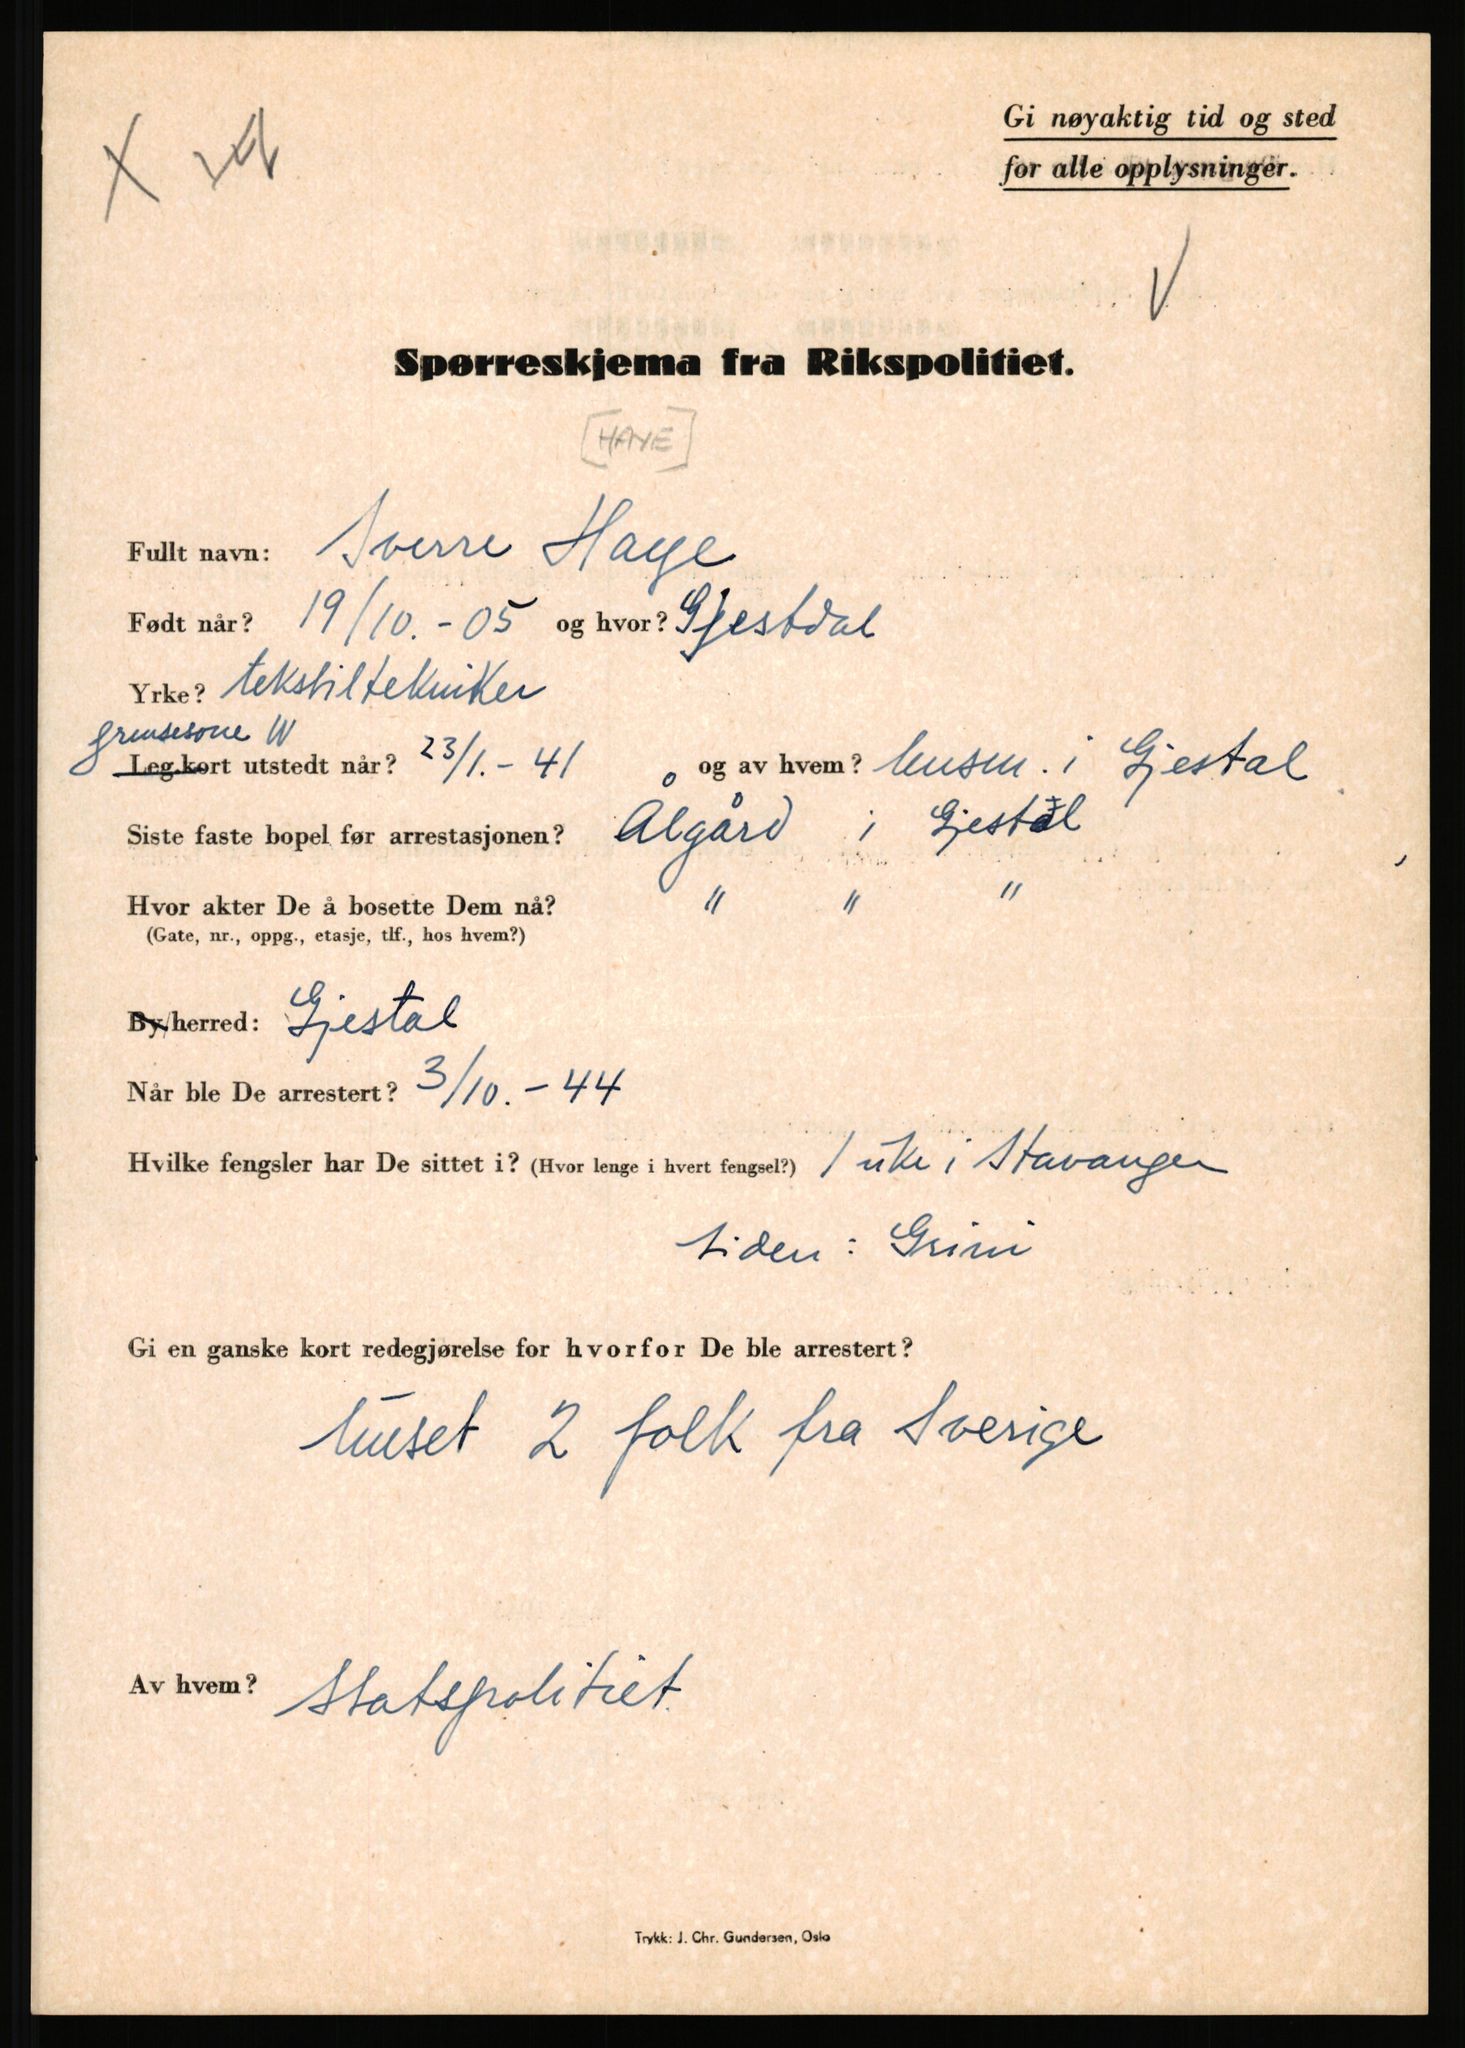 Gi nøyaktig tid og sted
for alle opplysninger.
Spørreskjema fra Rikspolitiet.
[HAYE]
Fullt navn: Sverre Haye
Født når? 19/10.-05 og hvor? Gjestdal
Yrke? tekstiltekniker
grensesone W
Leg.kort utstedt når? 23/1.-41 og av hvem? lensm. i Gjestal
Siste faste bopel før arrestasjonen? Ålgård i Gjestal
Hvor akter De å bosette Dem nå? " " "
(Gate, nr., oppg., etasje, tlf., hos hvem?)
By/herred: Gjestal
Når ble De arrestert? 3/10.-44
Hvilke fengsler har De sittet i? (Hvor lenge i hvert fengsel?) 1 uke i Stavanger
siden: Grini
Gi en ganske kort redegjørelse for hvorfor De ble arrestert?
huset 2 folk fra Sverige
Av hvem? Statspolitiet.
Trykk: J. Chr. Gundersen, Oslo